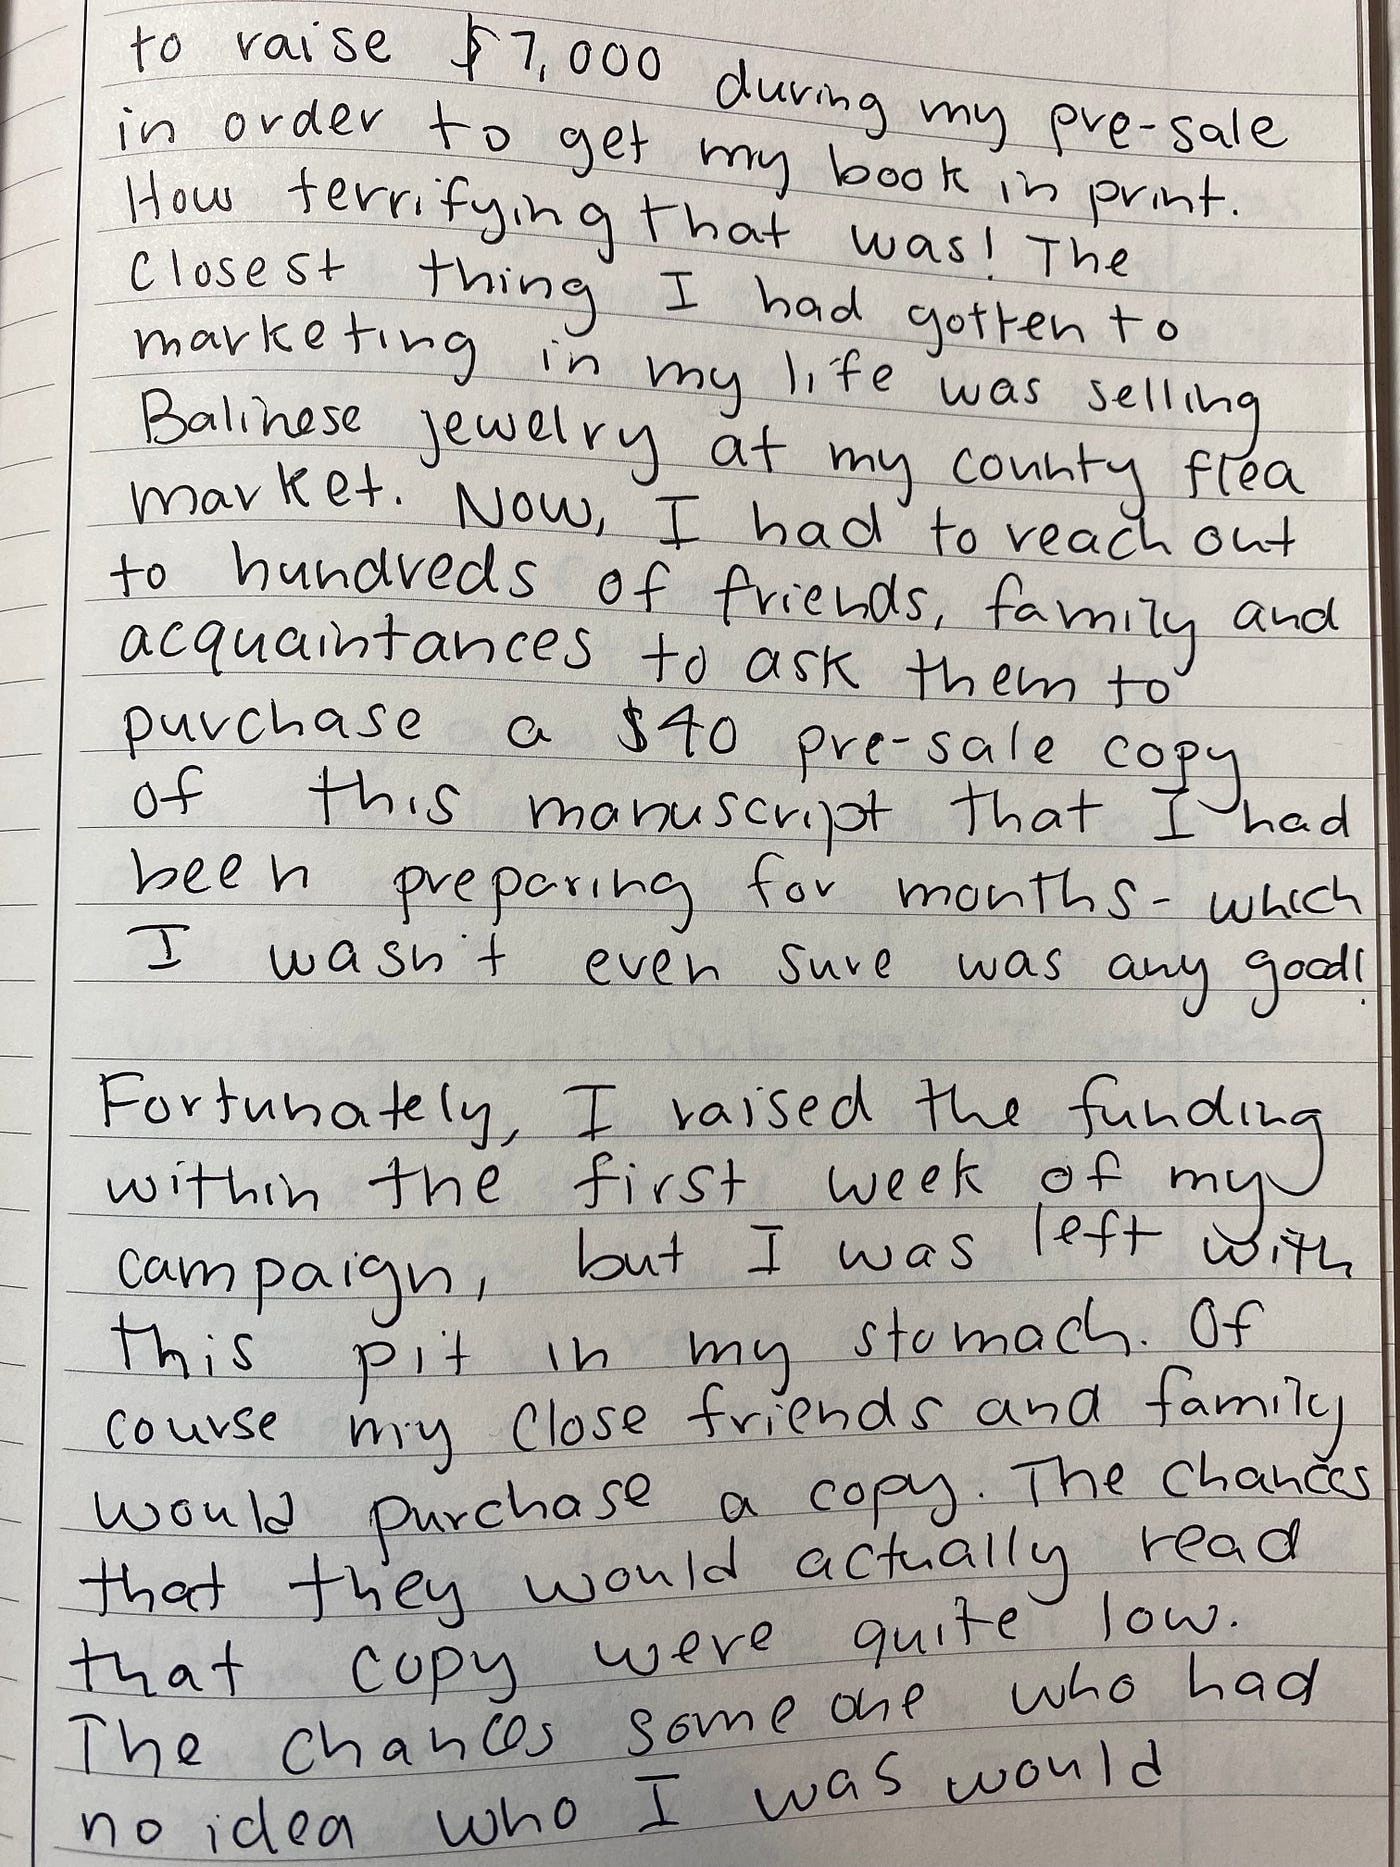 to raise $7,000 during my pre-sale
in order to get my book in print.
How terrifying that was! The
closest thing I had gotten to
marketing in my life was selling
Balinese jewelry at my county flea
market. Now, I had to reach out
to hundreds of friends, family and
acquaintances to ask them to
purchase a $40 pre-sale copy
of this manuscript that I had
been preparing for months - which
I wasn't even sure was any good!
Fortunately, I raised the funding
within the first week of my
campaign, but I was left with
this pit in my stomach. Of
course my close friends and family
would purchase a copy. The chances
that they would actually read
that copy were quite low.
The chances someone who had
no idea who I was would